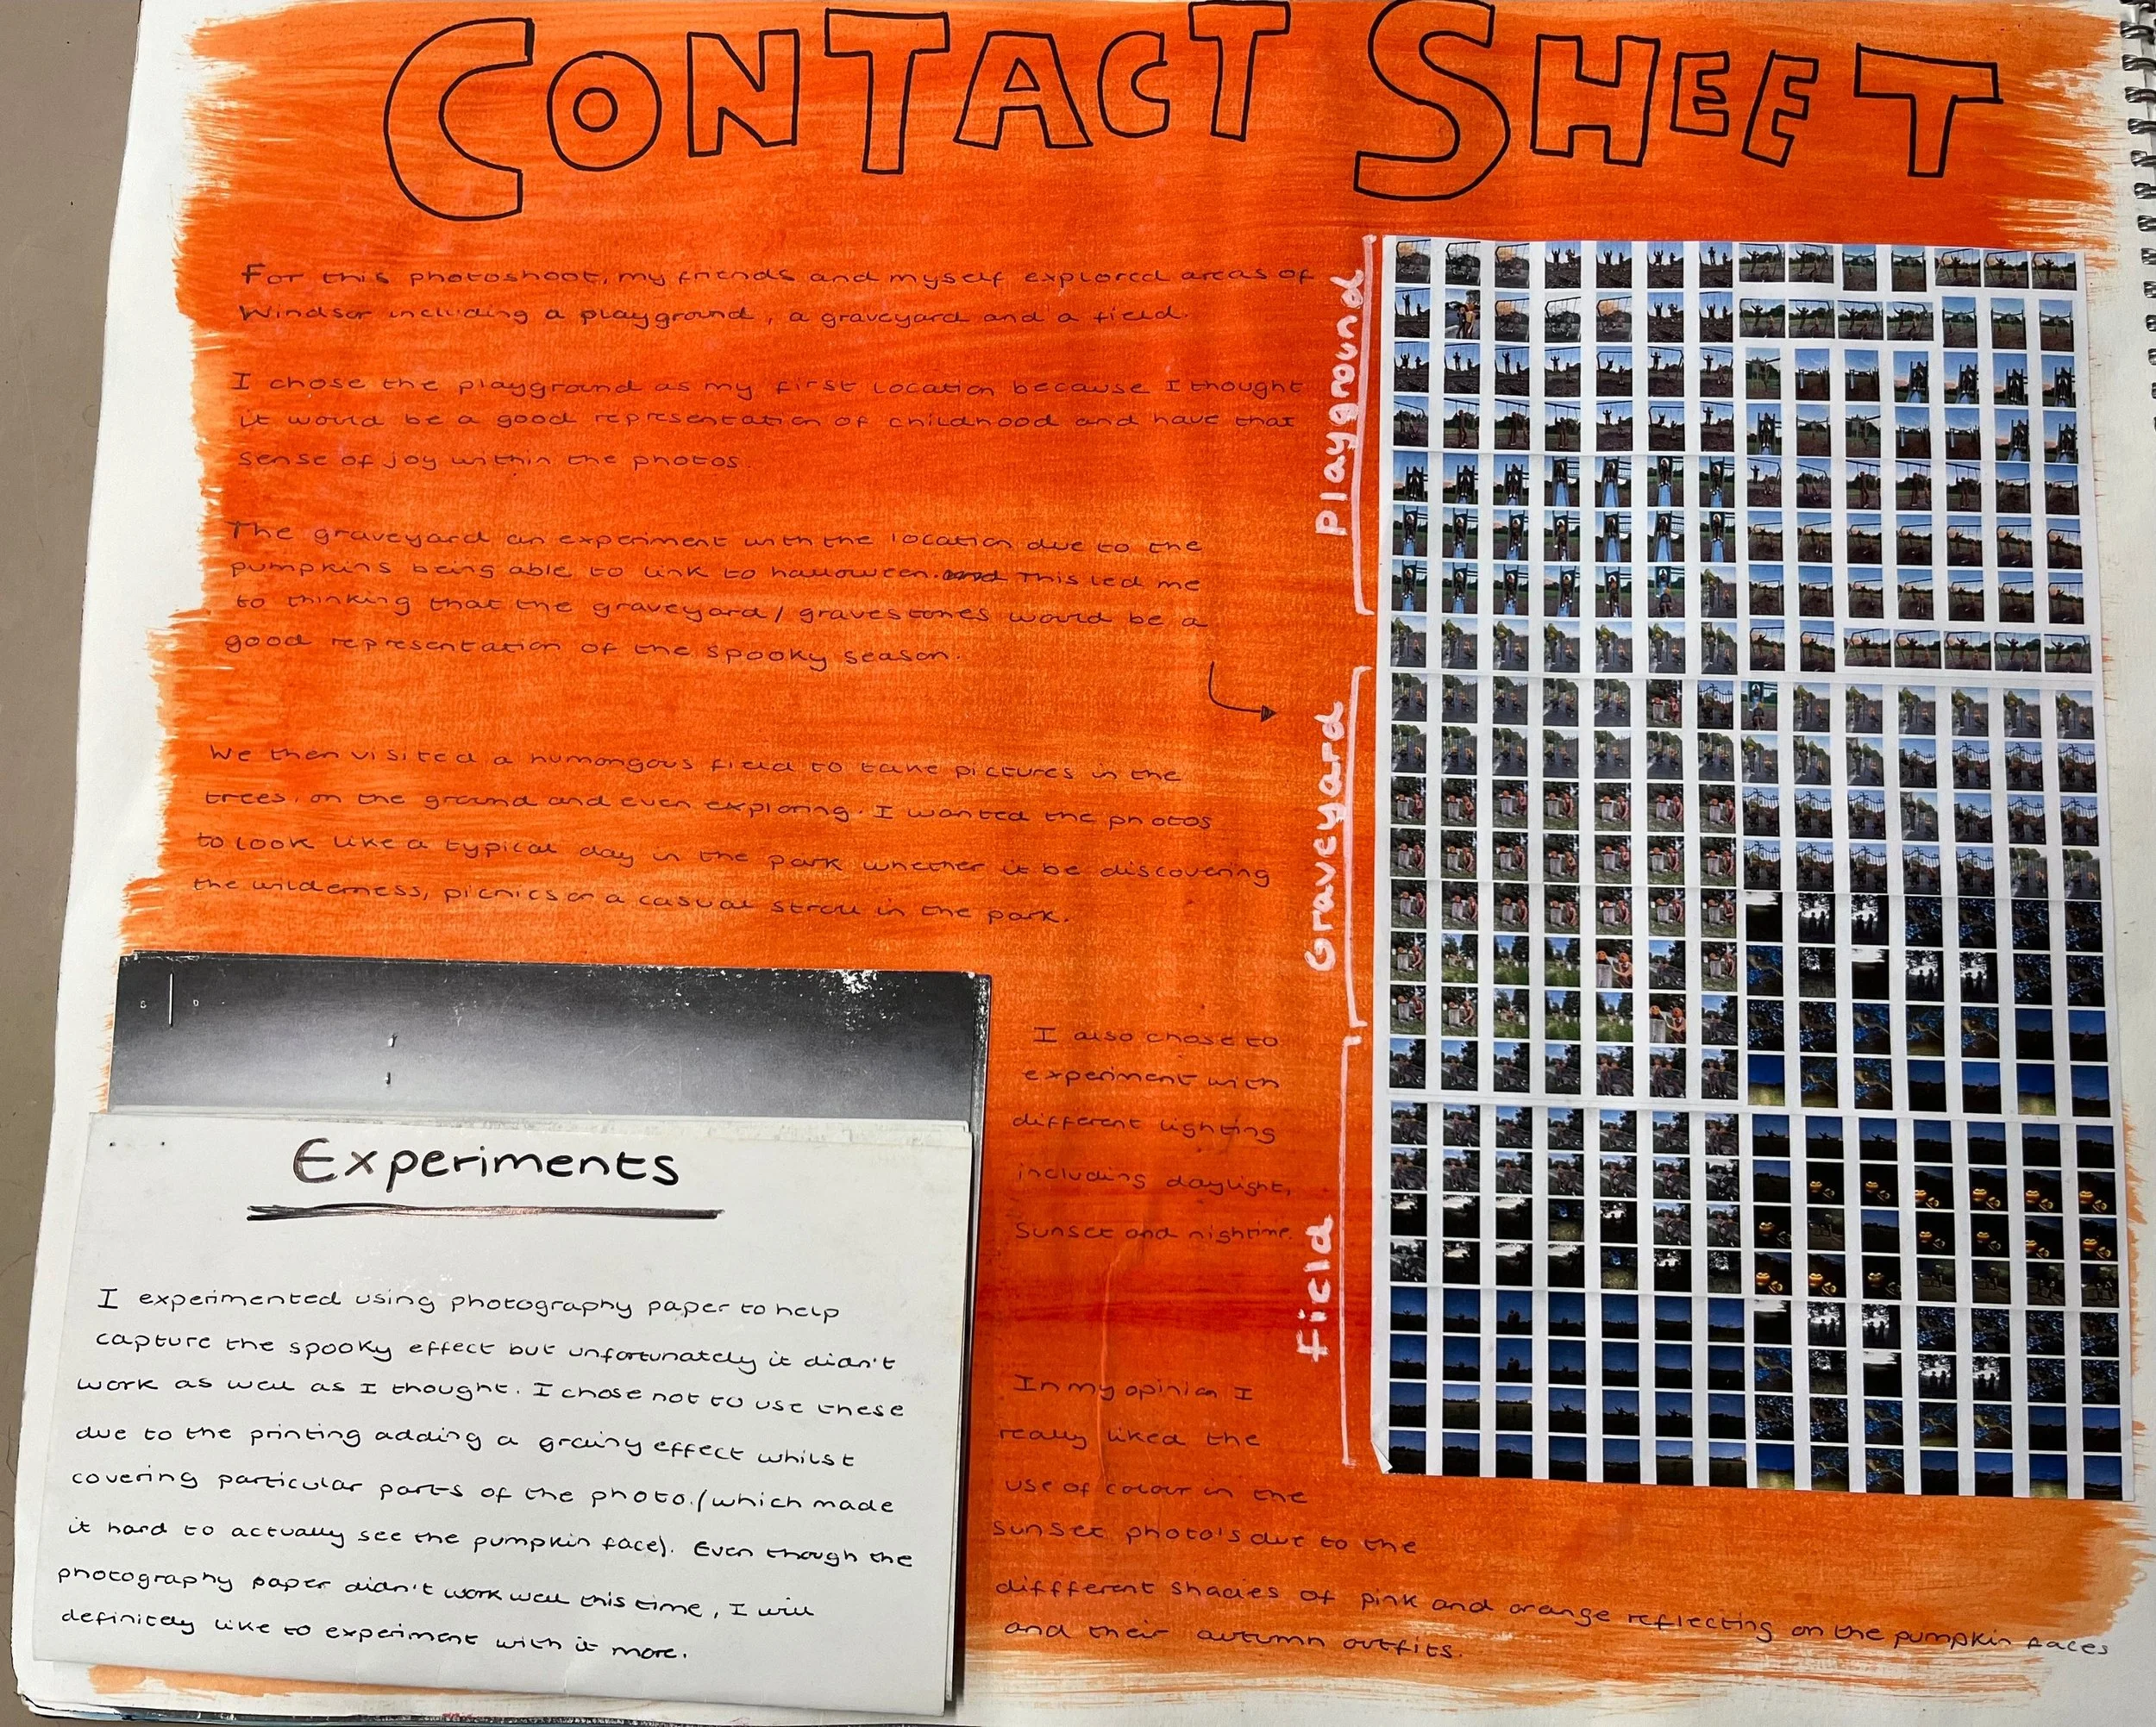 CONTACT SHEET
For this photoshoot, my friends and myself explored areas of
Windsor including a playground, a graveyard and a field.
I chose the playground as my first location because I thought
it would be a good representation of childhood and have that
sense of joy within the photos.
The graveyard an experiment with the location due to the
pumpkins being able to link to halloween. and This led me
to thinking that the graveyard/gravestones would be a
good representation of the spooky season.
We then visited a humongous field to take pictures in the
trees, on the ground and even exploring. I wanted the photos
to look like a typical day in the park whether it be discovering
the wilderness, picnics or a casual stroll in the park.
I also chose to
experiment with
different lighting
including daylight,
sunset and nightime.
In my opinion I
really liked the
use of colour in the
sunset photo's due to the
diffferent shades of pink and orange reflecting on the pumpkin faces
and their autumn outfits.
Playground
Graveyard
Field
Experiments
I experimented using photography paper to help
capture the spooky effect but unfortunately it didn't
work as well as I thought. I chose not to use these
due to the printing adding a grainy effect whilst
covering particular parts of the photo. (which made
it hard to actually see the pumpkin face). Even though the
photography paper didn't work well this time, I will
definitely like to experiment with it more.